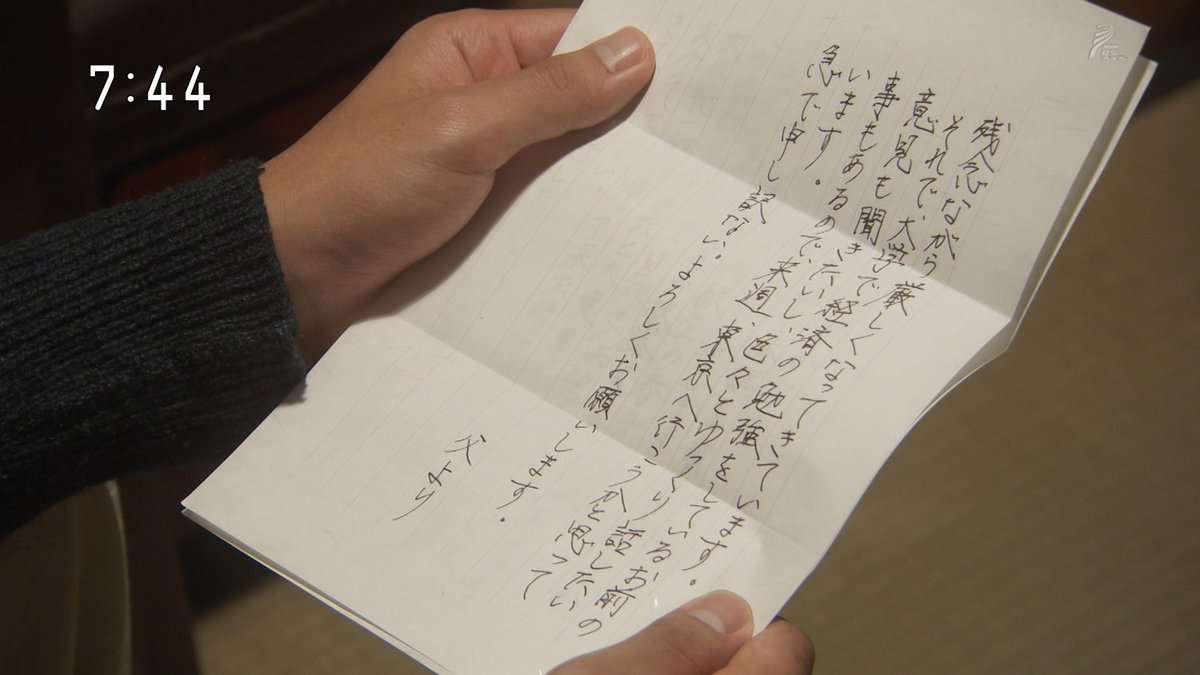 7:44
残念ながら厳しくなってきています。
それで、大学で経済の勉強をしているお前の
意見も聞きたいし、色々とゆっくり話したい
事もあるので、来週、東京へ行こうかと思って
います。
急で申し訳ない。よろしくお願いします。
父より